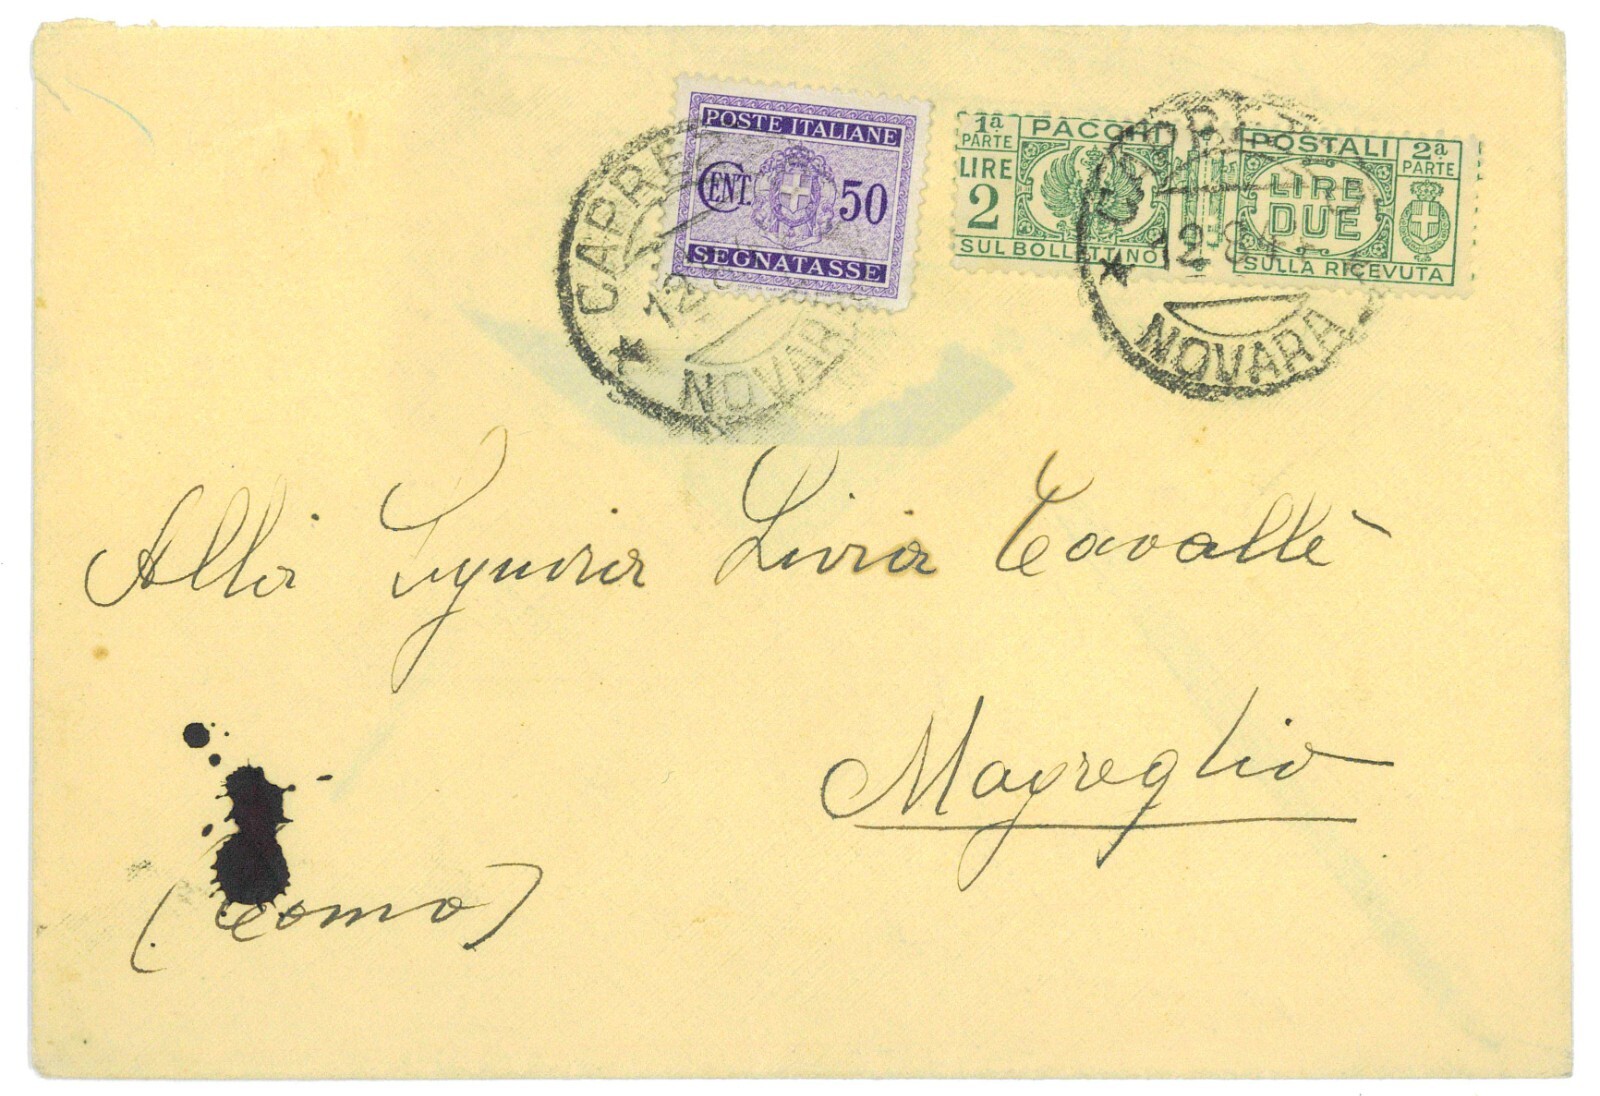 POSTE ITALIANE
CENT. 50
SEGNATASSE
1ª PARTE PACCHI
LIRE 2
SUL BOLLETTINO
POSTALI 2ª PARTE
LIRE DUE
SULLA RICEVUTA
NOVARA
NOVARA
Alla Signora Livia Cavallè
Magreglio
(Como)